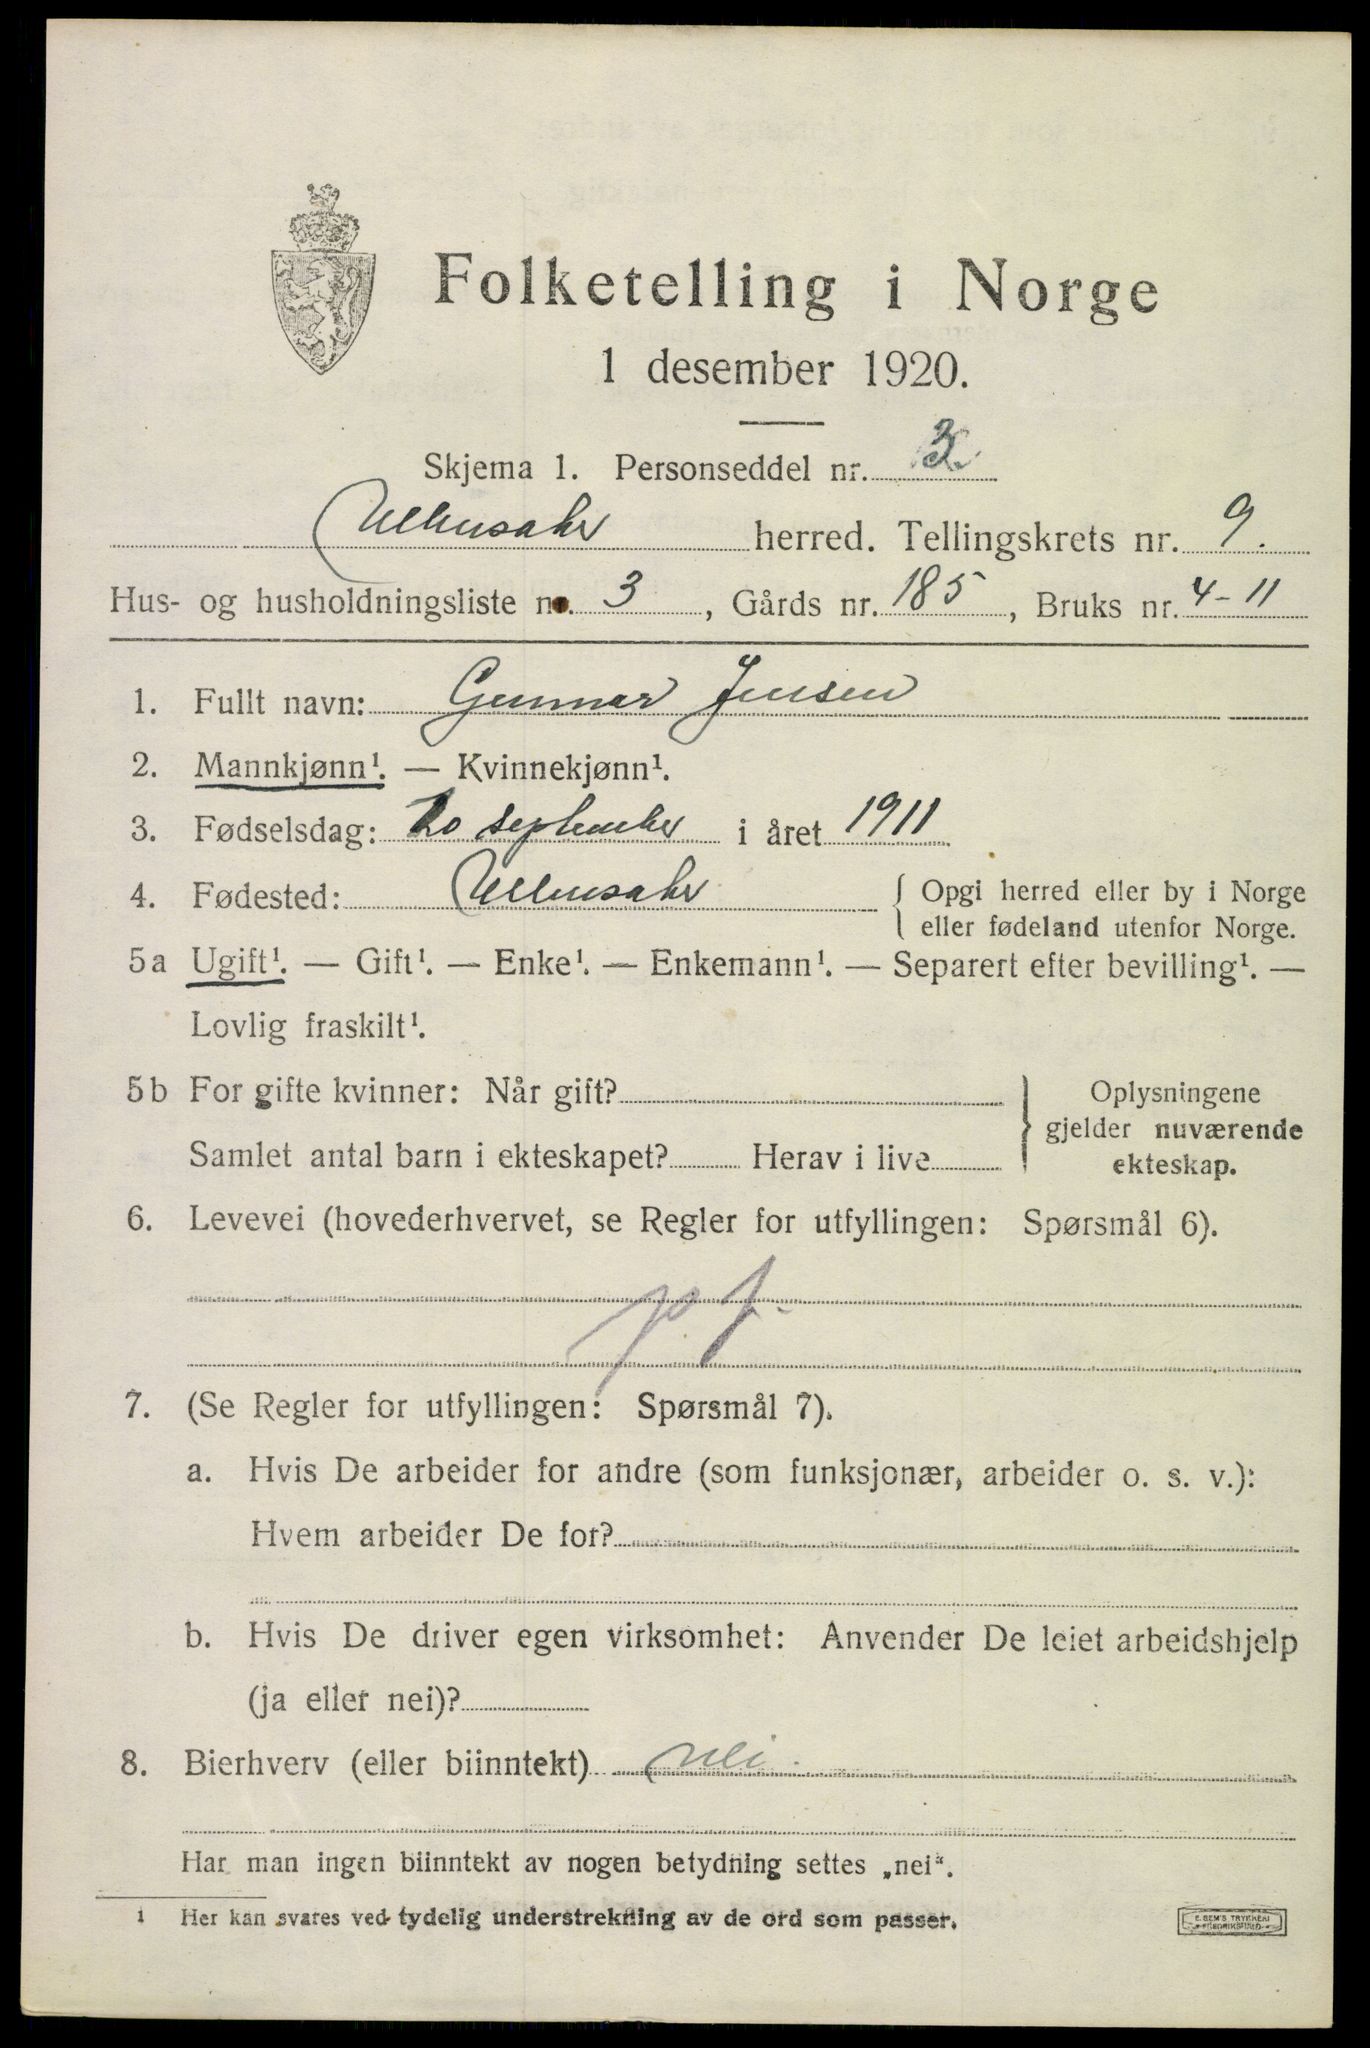 Folketelling i Norge
1 desember 1920.
Skjema 1. Personseddel nr. 3
Ullensaker herred. Tellingskrets nr. 9.
Hus- og husholdningsliste nr. 3, Gårds nr. 185, Bruks nr. 4-11
1. Fullt navn: Gunnar Jensen
2. Mannkjønn¹. — Kvinnekjønn¹.
3. Fødselsdag: 20 september i året 1911
4. Fødested: Ullensaker { Opgi herred eller by i Norge
eller fødeland utenfor Norge.
5a Ugift¹. — Gift¹. — Enke¹. — Enkemann¹. — Separert efter bevilling¹. —
Lovlig fraskilt¹.
5b For gifte kvinner: Når gift?
Samlet antal barn i ekteskapet? Herav i live
} Oplysningene
gjelder nuværende
ekteskap.
6. Levevei (hovederhvervet, se Regler for utfyllingen: Spørsmål 6).
p. f.
7. (Se Regler for utfyllingen: Spørsmål 7).
a. Hvis De arbeider for andre (som funksjonær, arbeider o. s. v.):
Hvem arbeider De for?
b. Hvis De driver egen virksomhet: Anvender De leiet arbeidshjelp
(ja eller nei)?
8. Bierhverv (eller biinntekt) nei.
Har man ingen biinntekt av nogen betydning settes „nei“.
¹ Her kan svares ved tydelig understrekning av de ord som passer.
E. SEM'S TRYKKERI
FREDRIKSHALD